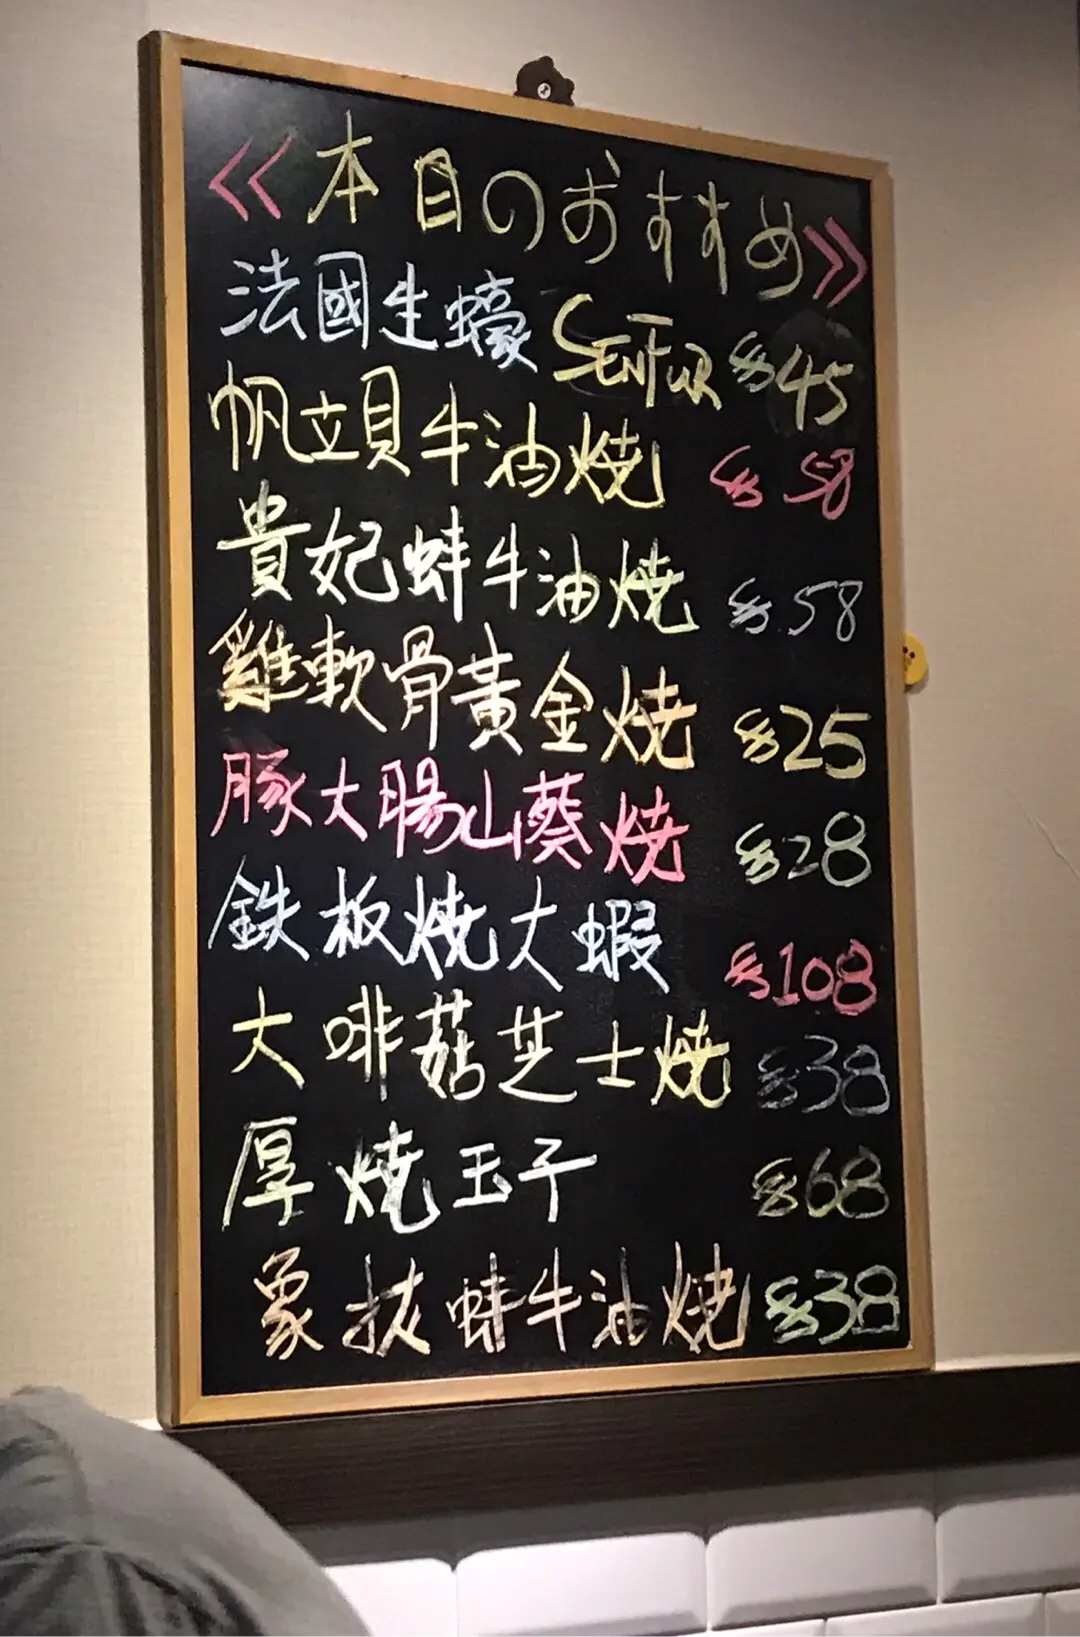 《本日のおすすめ》
法國生蠔 SENFUR $45
帆立貝牛油燒 $58
貴妃蚌牛油燒 $58
雞軟骨黃金燒 $25
豚大腸山葵燒 $28
鉄板燒大蝦 $108
大啡菇芝士燒 $38
厚燒玉子 $68
象拔蚌牛油燒 $38